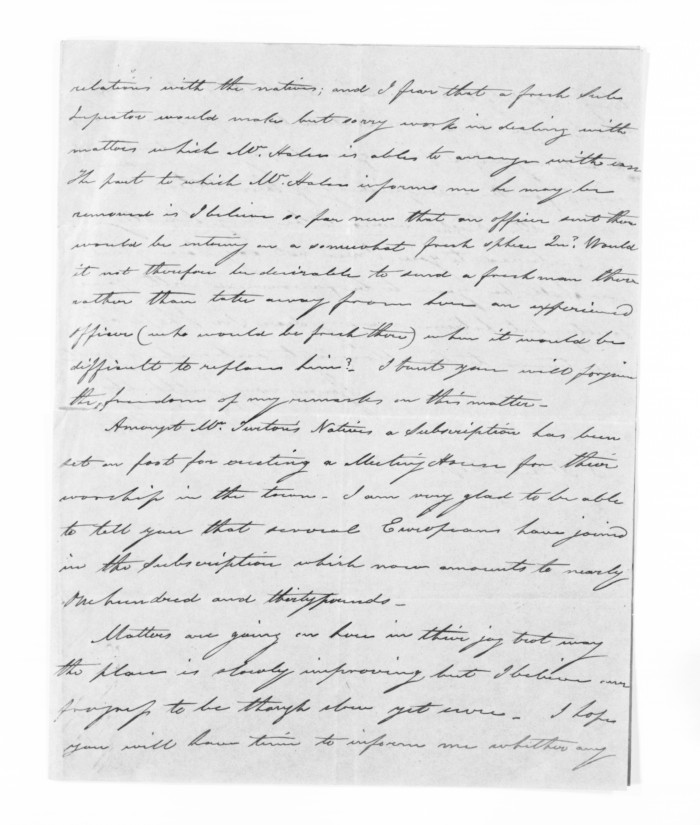 relations with the natives; and I fear that a fresh Sub
Inspector would make but sorry work in dealing with
matters which Mr. Halse is able to arrange with ease
The part to which Mr. Halse informs me he may be
removed is I believe so far new that an officer sent there
would be entering on a somewhat fresh sphere Would
it not therefore be desirable to send a fresh man there
rather than take away from here an experienced
officer (who would be fresh there) when it would be
difficult to replace him? - I trust you will forgive
the freedom of my remarks on this matter -
Amongst Mr. Turton's Natives a Subscription has been
set on foot for erecting a Meeting House for their
worship in the town - I am very glad to be able
to tell you that several Europeans have joined
in the Subscription which now amounts to nearly
One hundred and thirty pounds -
Matters are going on here in their jog trot way
the place is slowly improving but I believe our
progress to be though slow yet sure - I hope
you will have time to inform me whether any